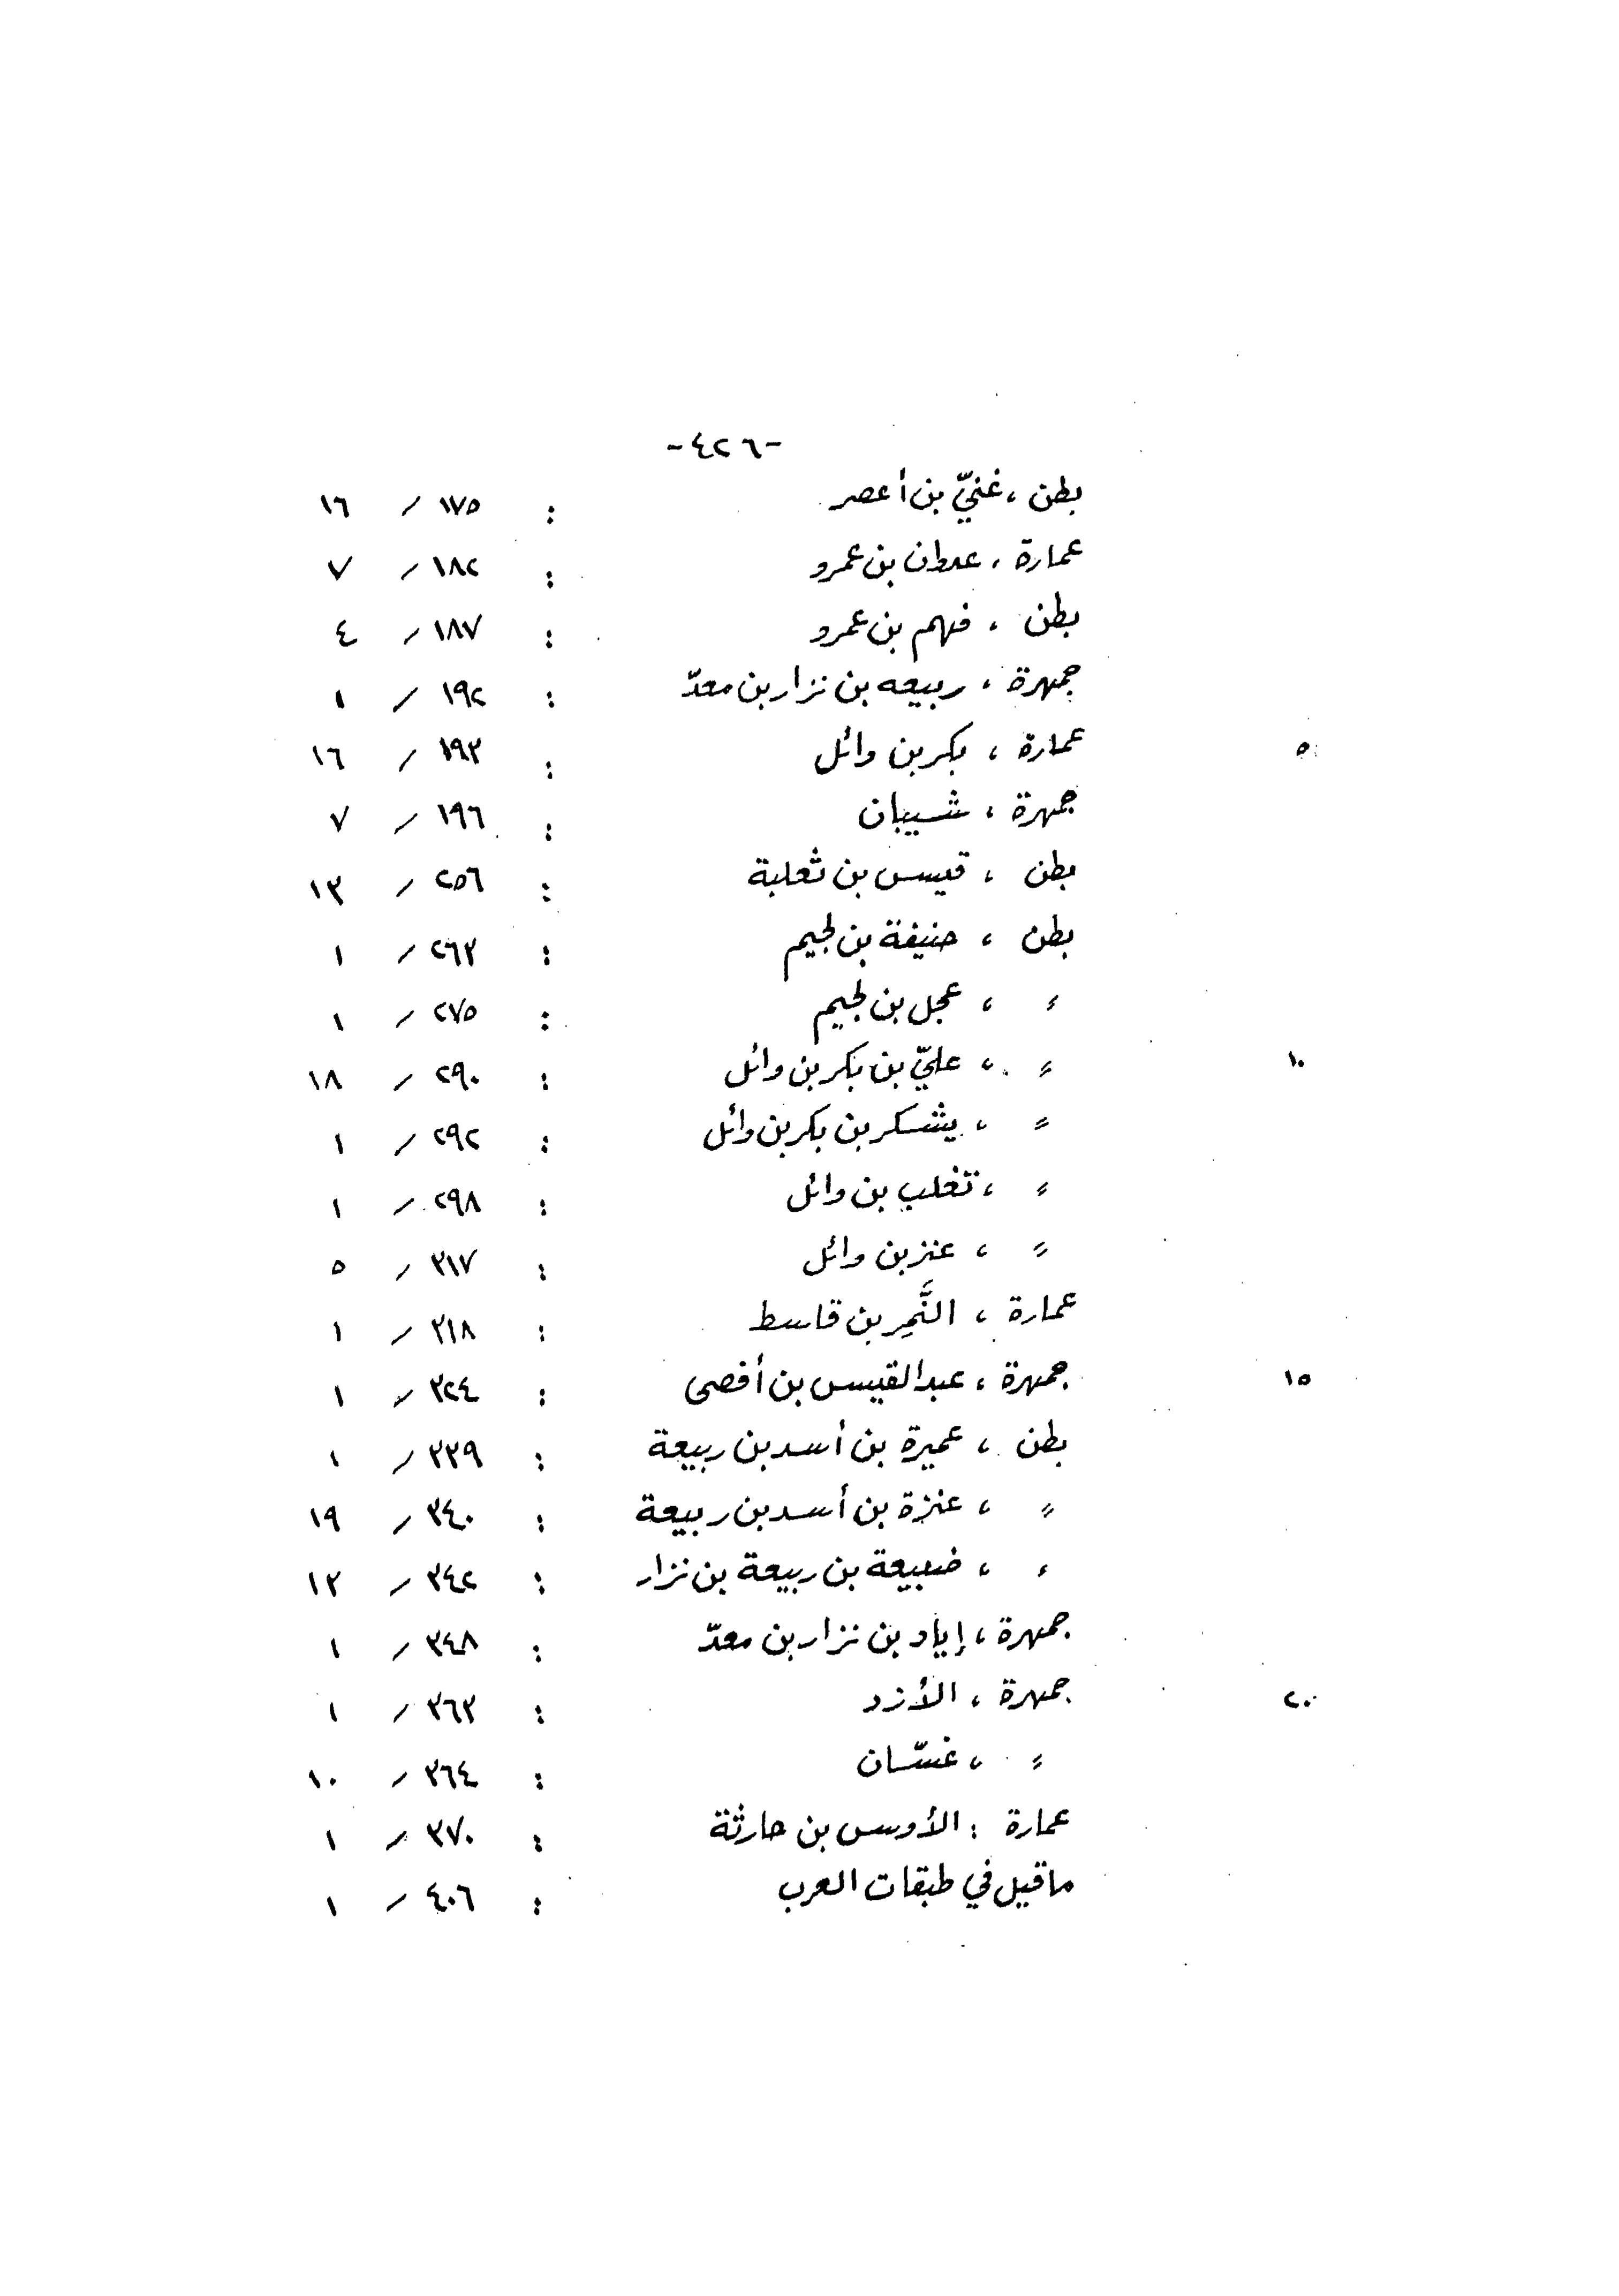 -٤٢٦-
بطن ، غنيّ بن أعصر : ١٧٥ / ١٦
عمارة ، عدوان بن عمرو : ١٨٢ / ٧
بطن ، فهم بن عمرو : ١٨٧ / ٤
جمهرة ، ربيعه بن نزار بن معدّ : ١٩٢ / ١
٥ عمارة ، بكر بن وائل : ١٩٣ / ١٦
جمهرة ، شيبان : ١٩٦ / ٧
بطن ، قيس بن ثعلبة : ٢٥٦ / ١٣
بطن ، حنيفة بن لجيم : ٢٦٣ / ١
〃 ، عجل بن لجيم : ٢٧٥ / ١
١٠ 〃 ، عليّ بن بكر بن وائل : ٢٩٠ / ١٨
〃 ، يشكر بن بكر بن وائل : ٢٩٢ / ١
〃 ، تغلب بن وائل : ٢٩٨ / ١
〃 ، عنز بن وائل : ٣١٧ / ٥
عمارة ، النَّمِر بن قاسط : ٣١٨ / ١
١٥ جمهرة ، عبد القيس بن أفصى : ٣٢٤ / ١
بطن ، عميرة بن أسد بن ربيعة : ٣٣٩ / ١
〃 ، عنزة بن أسد بن ربيعة : ٣٤٠ / ١٩
〃 ، ضبيعة بن ربيعة بن نزار : ٣٤٢ / ١٣
جمهرة ، إياد بن نزار بن معدّ : ٣٤٨ / ١
٢٠ جمهرة ، الأزد : ٣٦٣ / ١
〃 ، غسّان : ٣٦٤ / ١٠
عمارة : الأوس بن حارثة : ٣٧٠ / ١
ما قيل في طبقات العرب : ٤٠٦ / ١